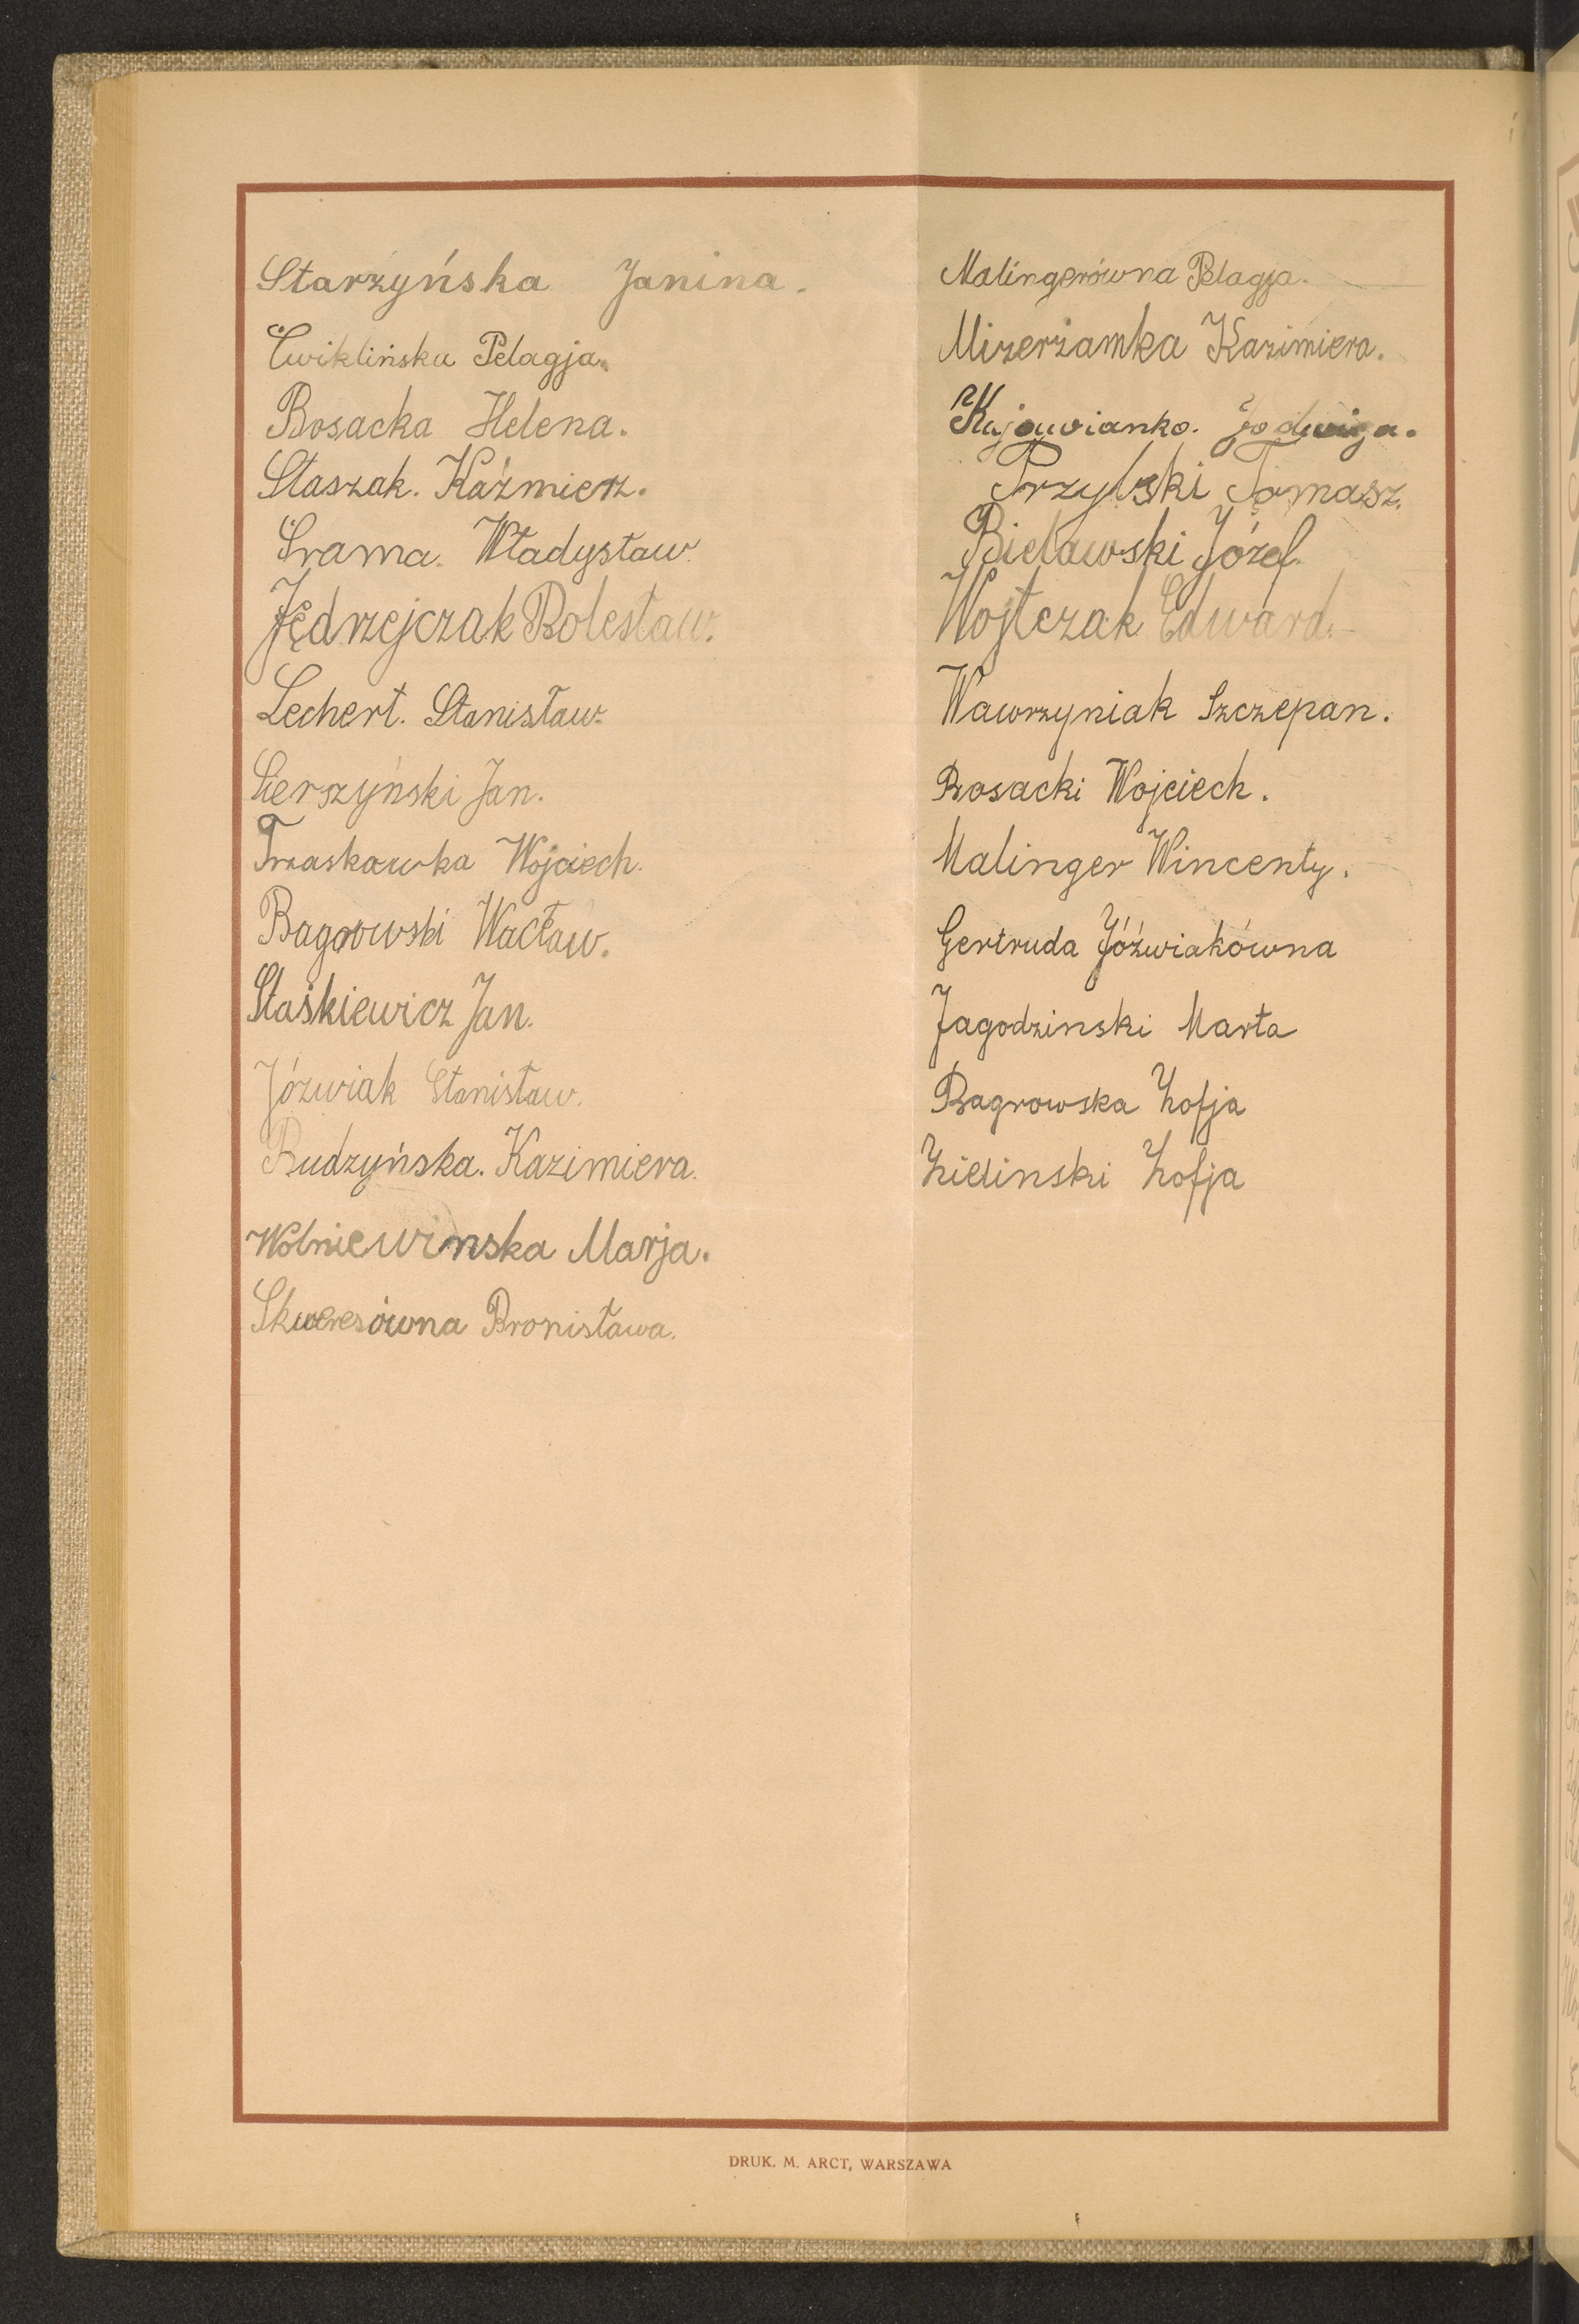 Starzyńska Janina.
Ćwiklińska Pelagja.
Bosacka Helena.
Staszak. Kaźmierz.
Srama. Władysław.
Jędrzejczak Bolesław.
Lechert. Stanisław.
Sierszyński Jan.
Trzaskawka Wojciech.
Bagrowski Wacław.
Staśkiewicz Jan.
Józwiak Stanisław.
Budzyńska. Kazimiera.
Wolniewinska Marja.
Skweresówna Bronisława.
Malingerówna Pelagja.
Mizerzamka Kazimiera.
Kujawianka. Jadwiga.
Przybski Tomasz.
Bielawski Józef.
Wojtczak Edward.
Wawrzyniak Szczepan.
Bosacki Wojciech.
Malinger Wincenty.
Gertruda Jóźwiakówna
Jagodzinski Marta
Bagrowska Zofja
Zielinski Zofja
DRUK. M. ARCT, WARSZAWA